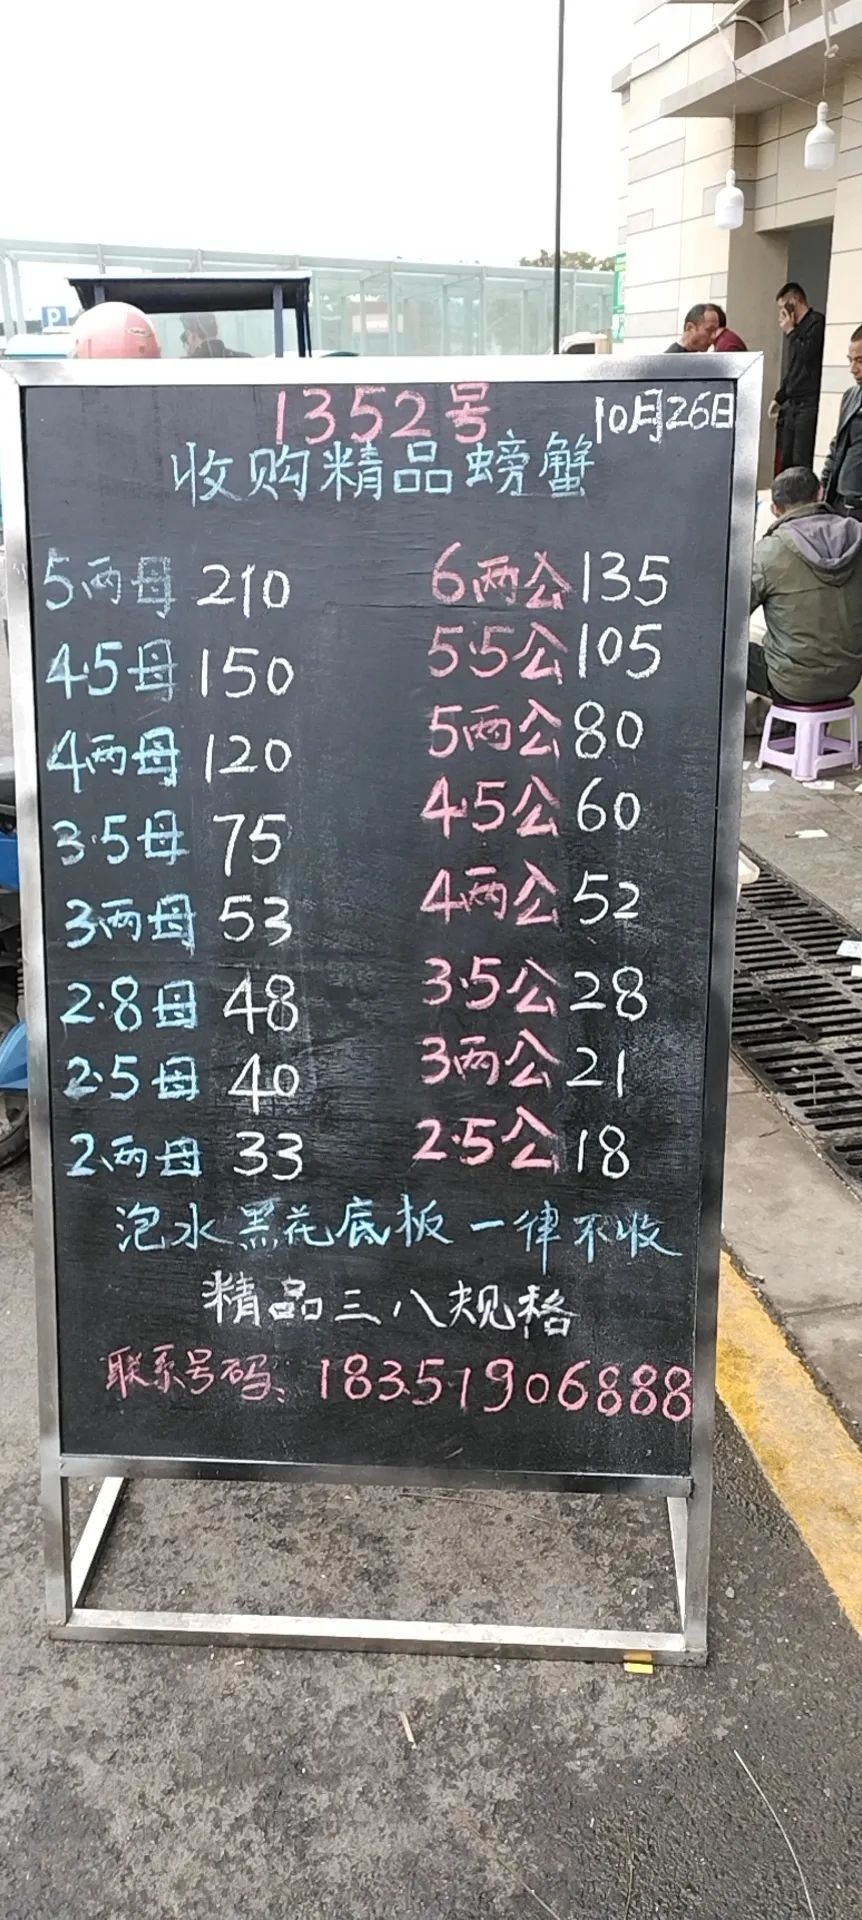 1352号 10月26日
收购精品螃蟹
5两母 210 6两公 135
4.5母 150 5.5公 105
4两母 120 5两公 80
3.5母 75 4.5公 60
3两母 53 4两公 52
2.8母 48 3.5公 28
2.5母 40 3两公 21
2两母 33 2.5公 18
泡水黑花底板一律不收
精品三八规格
联系号码: 18351906888
P